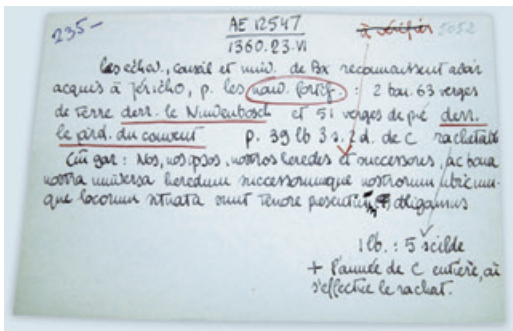 235- AE 12547 à vérifier 5052
1360.23.VI
Les échev., conseil et univ. de Bx reconnaissent avoir
acquis à Jéricho, p. les nouv. fortif. : 2 bon. 63 verges
de terre derr. le Nuwenbosch et 51 verges de pré derr.
le jard. du couvent p. 39 lb 3 s. 2 d. de C rachetable
Cum gar : Nos, nos ipsos, nostros heredes et successores, ac bona
nostra universa heredum successorumque nostrorum ubicum-
que locorum situata sunt tenore presentium obligamus
1 lb. : 5 scilde
+ l'année de C entière, où
s'effectue le rachat.